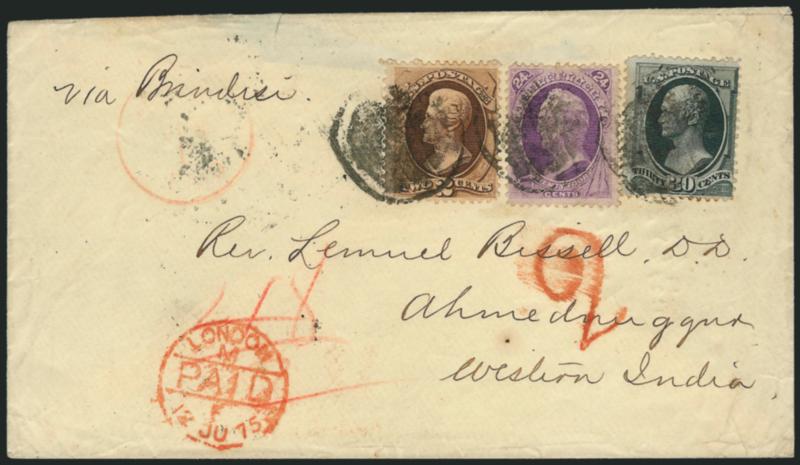 via Brindisi
U.S. POSTAGE
TWO 2 CENTS
24 24
CENTS
U.S. POSTAGE
THIRTY 30 CENTS
Rev. Lemuel Bissell, D.D.
Ahmednuggur
Western India
LONDON
PAID
12 JU 75